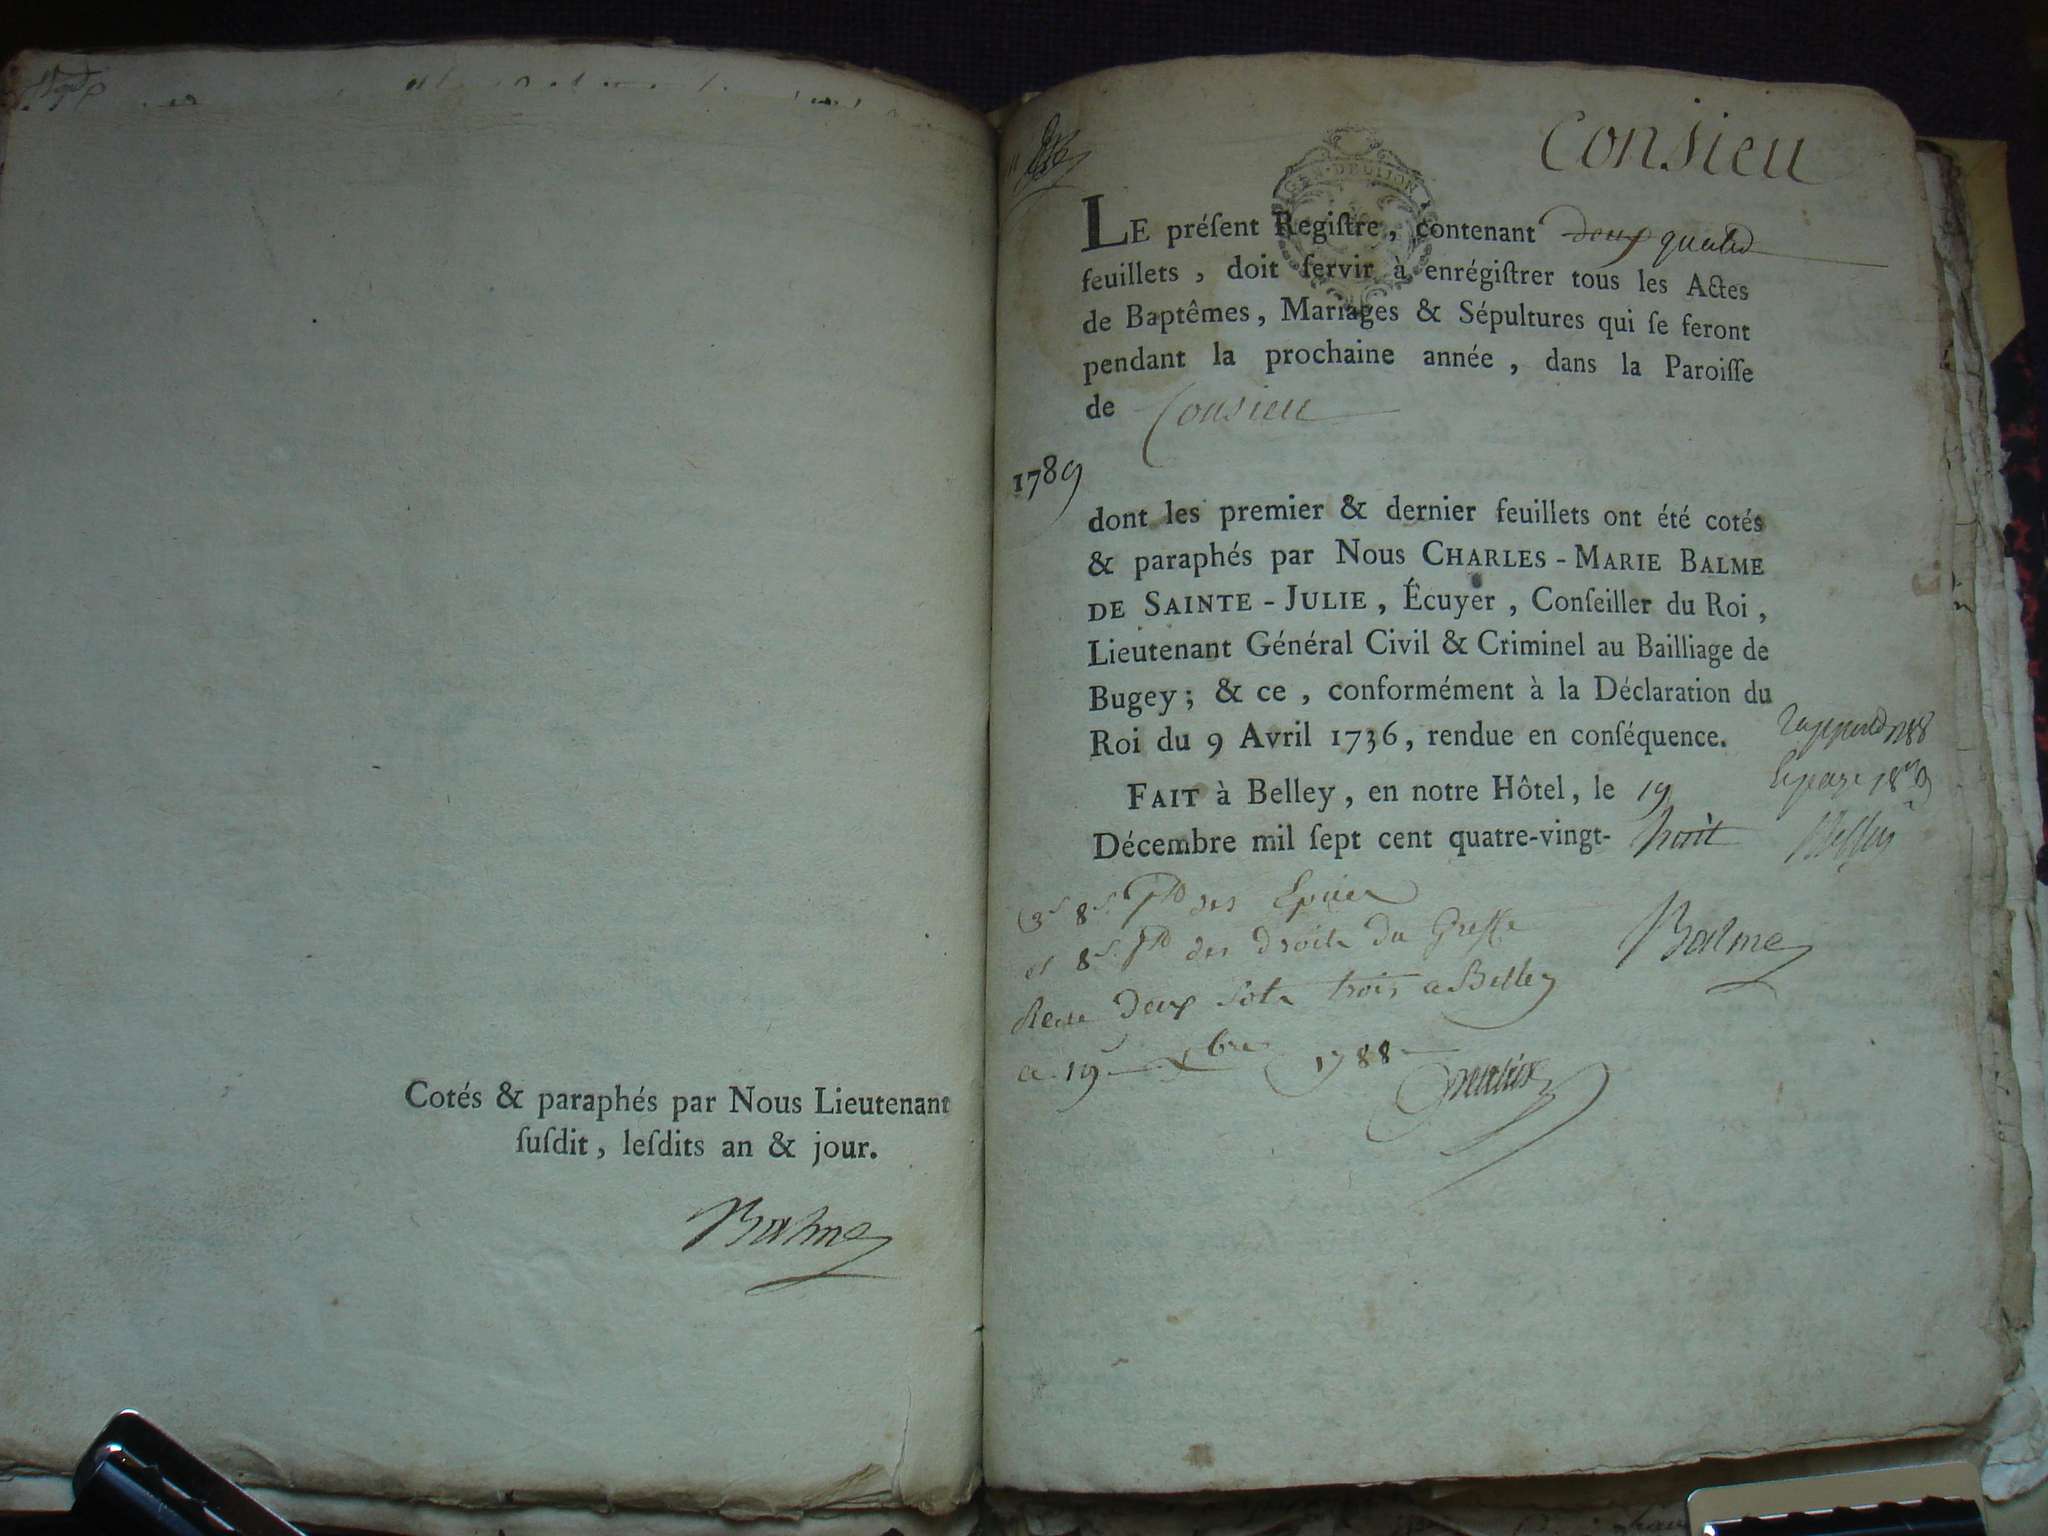 Cotés & paraphés par Nous Lieutenant
ſuſdit, leſdits an & jour.
Balme
Consieu
GEN. DE DIJON
LE préſent Regiſtre, contenant deux quatre
feuillets, doit ſervir à enrégiſtrer tous les Actes
de Baptêmes, Mariages & Sépultures qui ſe feront
pendant la prochaine année, dans la Paroiſſe
de Consieu
1789
dont les premier & dernier feuillets ont été cotés
& paraphés par Nous CHARLES-MARIE BALME
DE SAINTE-JULIE, Écuyer, Conſeiller du Roi,
Lieutenant Général Civil & Criminel au Bailliage de
Bugey; & ce, conformément à la Déclaration du
Roi du 9 Avril 1736, rendue en conſéquence.
FAIT à Belley, en notre Hôtel, le 19
Décembre mil ſept cent quatre-vingt-huit
8 des Epices
et 8 des droits du Greffe
Balme
deux sols trois a Belley
19 xbre 1788